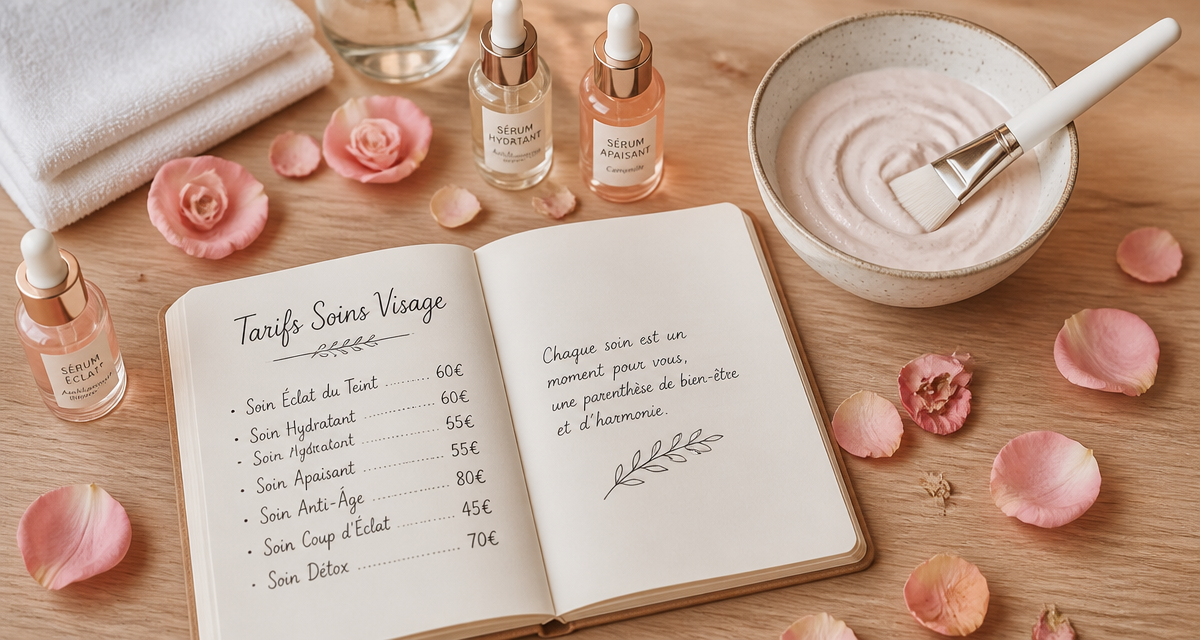 SÉRUM
HYDRATANT
SÉRUM
APAISANT
SÉRUM
ÉCLAT
Tarifs Soins Visage
• Soin Éclat du Teint ........ 60€
• Soin Hydratant ........ 60€
• Soin Hydratant ........ 55€
• Soin Apaisant ........ 55€
• Soin Anti-Âge ........ 80€
• Soin Coup d'Éclat ........ 45€
• Soin Détox ........ 70€
Chaque soin est un
moment pour vous,
une parenthèse de bien-être
et d'harmonie.